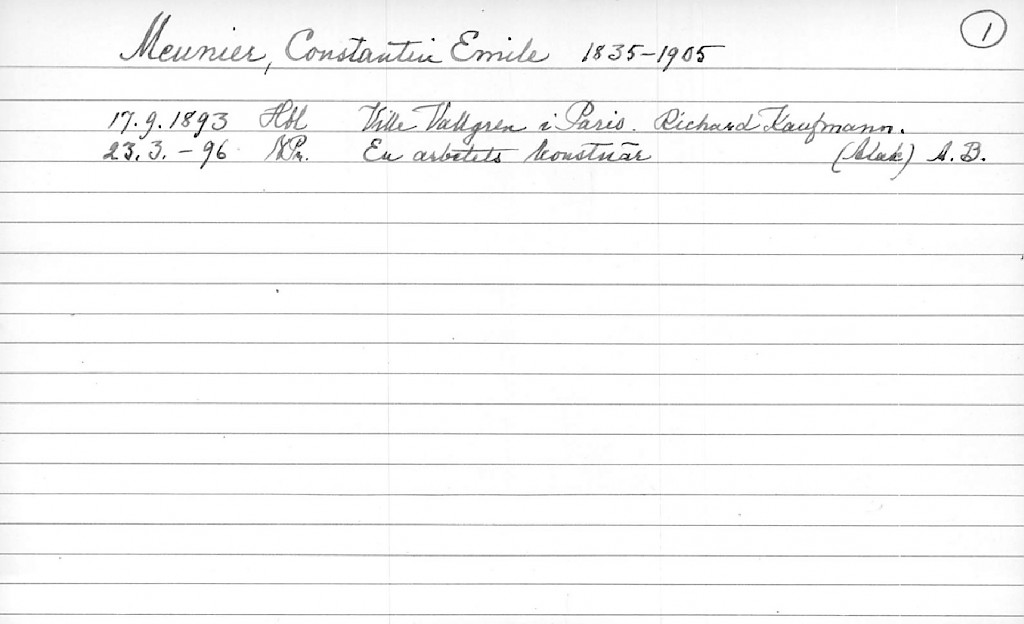 1
Meunier, Constantin Emile 1835-1905
17.9.1893 Hbl Ville Vallgren i Paris. Richard Kaufmann.
23.3.-96 N.Pr. En arbetets konstnär A.B.